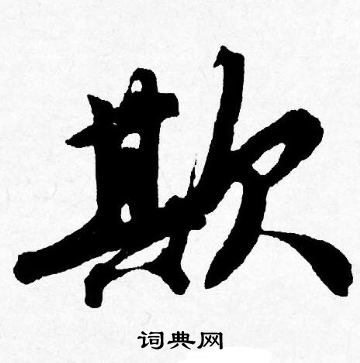 欺
词典网